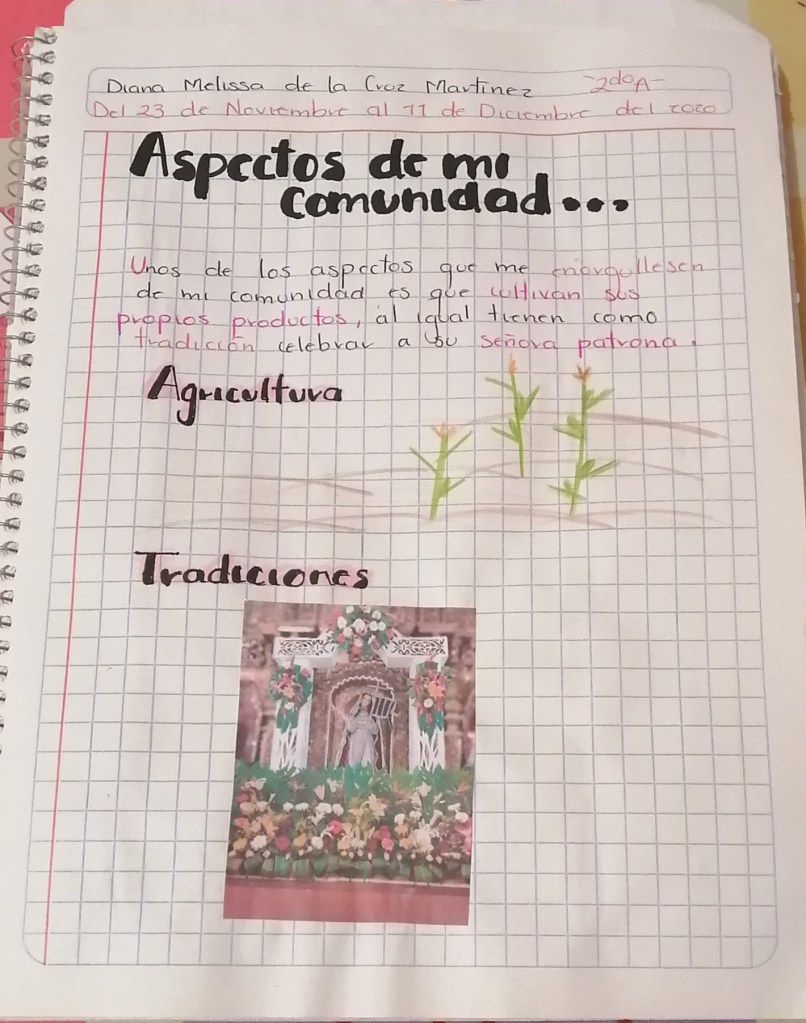 Diana Melissa de la Croz Martinez -2doA-
Del 23 de Noviembre al 11 de Diciembre del 2020
Aspectos de mi
comunidad...
Unos de los aspectos que me enorgullesen
de mi comunidad es que cultivan sus
propios productos, al igual tienen como
tradición celebrar a su señora patrona.
Agricultura
Tradiciones